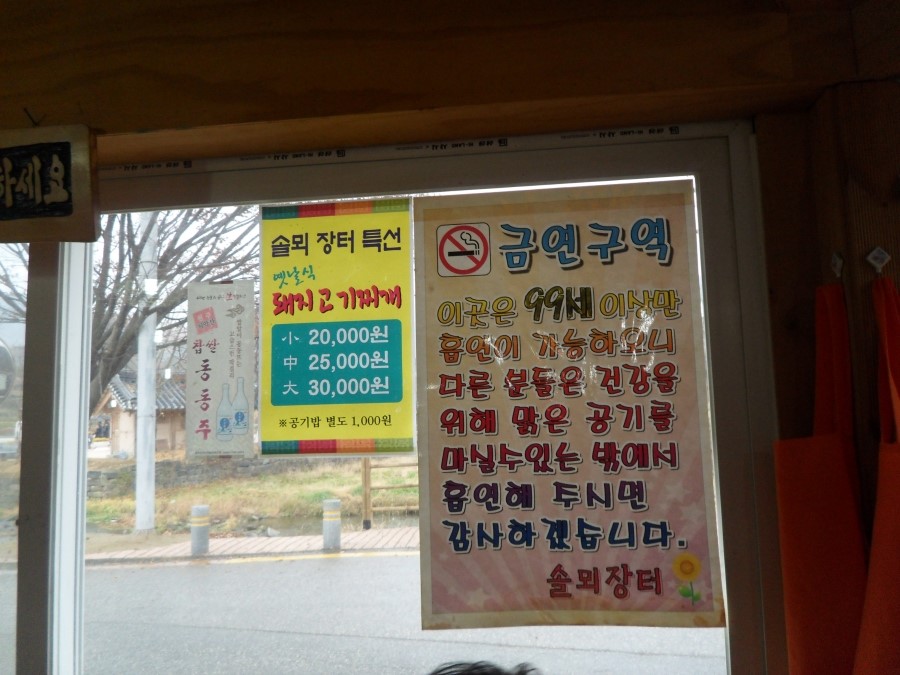 하세요
찹쌀
동동주
솔뫼 장터 특선
옛날식
돼지고기찌개
小 20,000원
中 25,000원
大 30,000원
※공기밥 별도 1,000원
금연구역
이곳은 99세 이상만
흡연이 가능하오니
다른 분들은 건강을
위해 맑은 공기를
마실수있는 밖에서
흡연해 주시면
감사하겠습니다.
솔뫼장터